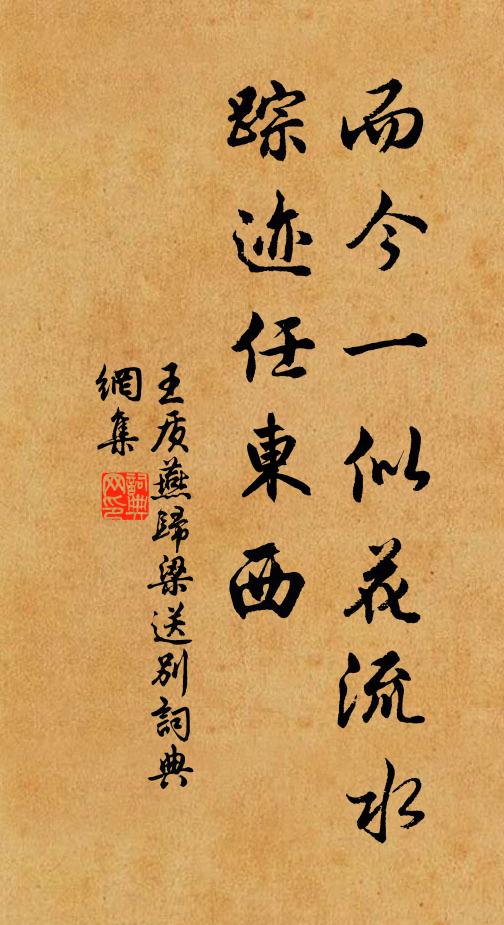 而今一似花流水
踪迹任東西
王质燕歸梁送别詞典
網集
詞典
网印